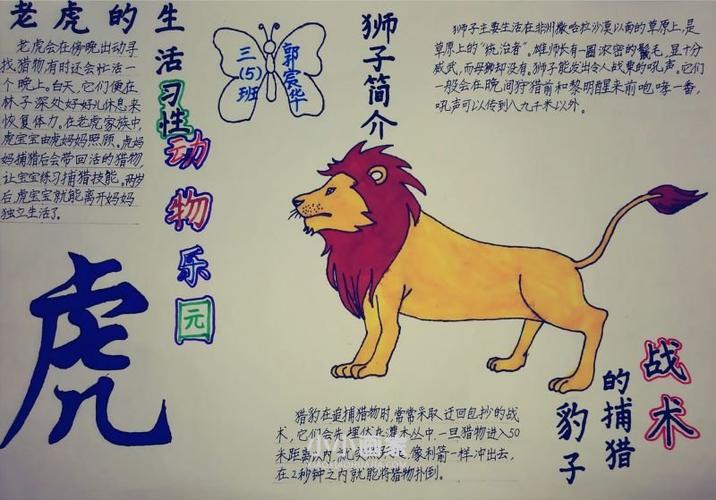 老虎的生活习性
老虎会在傍晚出动寻
找猎物有时还会忙活一
个晚上。白天，它们便在
林子深处好好儿休息来
恢复体力。在老虎家族中，
虎宝宝由虎妈妈照顾。虎妈
妈捕猎后会带回活的猎物，
让宝宝练习捕猎技能。两岁
后，虎宝宝就能离开妈妈
独立生活了。
虎
三(5)班
郭宸华
动物乐园
狮子简介
狮子主要生活在非洲撒哈拉沙漠以南的草原上，是
草原上的“统治者”。雄师长有一圈浓密的鬃毛，显十分
威武，而母狮却没有。狮子能发出令人战栗的吼声。它们
一般会在晚间狩猎前和黎明醒来前咆哮一番，
吼声可以传到八九千米以外。
豹子的捕猎战术
猎豹在追捕猎物时，常常采取迂回包抄的战
术，它们会先埋伏在灌木丛中，一旦猎物进入50
米距离以内，就突然
像利箭一样冲出去，
在2秒钟之内就能将猎物扑倒。